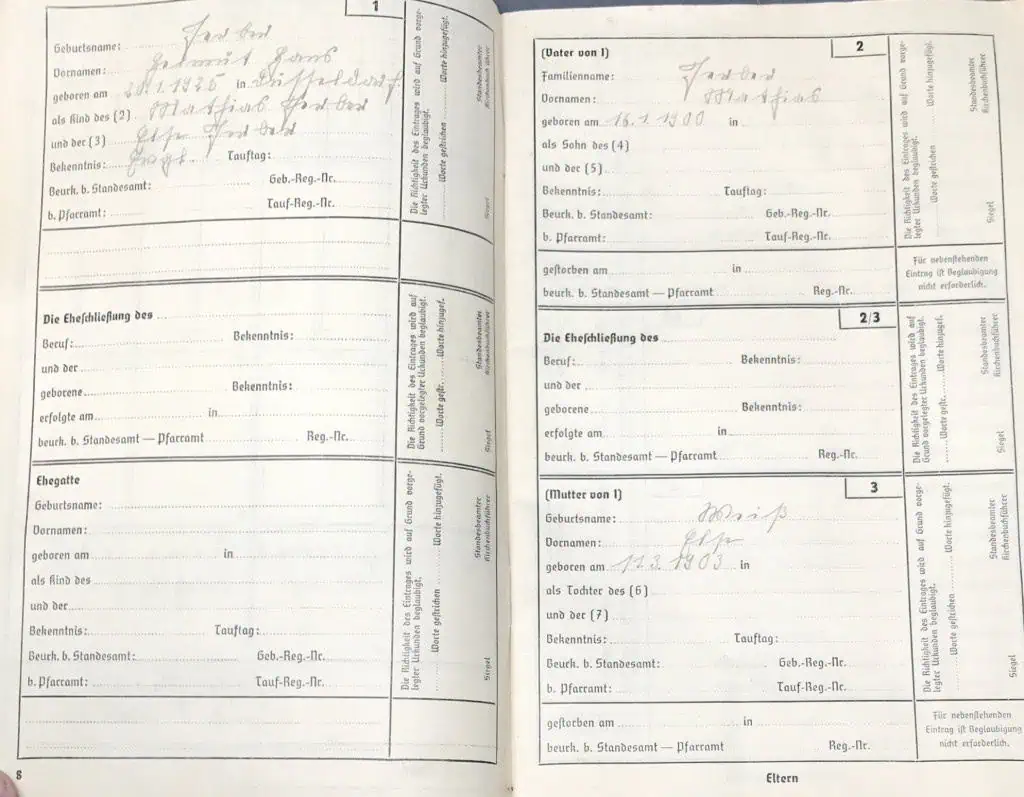 1
Geburtsname: Ferber
Vornamen: Helmut Hans
geboren am in Düsseldorf
als Kind des (2) Mathias Ferber
und der (3) Else Ferber
Bekenntnis: Evgl. Tauftag:
Beurk. b. Standesamt: Geb.-Reg.-Nr.
b. Pfarramt: Tauf-Reg.-Nr.
Die Richtigkeit des Eintrages wird auf Grund vorge-
legter Urkunden beglaubigt.
Worte gestrichen Worte hinzugefügt.
Standesbeamter
Kirchenbuchführer
Siegel
Die Eheschließung des
Beruf: Bekenntnis:
und der
geborene Bekenntnis:
erfolgte am in
beurk. b. Standesamt — Pfarramt Reg.-Nr.
Die Richtigkeit des Eintrages wird auf
Grund vorgelegter Urkunden beglaubigt.
Worte gestr. Worte hinzugef.
Standesbeamter
Kirchenbuchführer
Siegel
Ehegatte
Geburtsname:
Vornamen:
geboren am in
als Kind des
und der
Bekenntnis: Tauftag:
Beurk. b. Standesamt: Geb.-Reg.-Nr.
b. Pfarramt: Tauf-Reg.-Nr.
Die Richtigkeit des Eintrages wird auf Grund vorge-
legter Urkunden beglaubigt.
Worte gestrichen Worte hinzugefügt.
Standesbeamter
Kirchenbuchführer
Siegel
8
2
(Vater von 1)
Familienname: Ferber
Vornamen: Mathias
geboren am 16.1.1900 in
als Sohn des (4)
und der (5)
Bekenntnis: Tauftag:
Beurk. b. Standesamt: Geb.-Reg.-Nr.
b. Pfarramt: Tauf-Reg.-Nr.
Die Richtigkeit des Eintrages wird auf Grund vorge-
legter Urkunden beglaubigt.
Worte gestrichen Worte hinzugefügt.
Standesbeamter
Kirchenbuchführer
Siegel
gestorben am in
beurk. b. Standesamt — Pfarramt Reg.-Nr.
Für nebenstehenden
Eintrag ist Beglaubigung
nicht erforderlich.
2/3
Die Eheschließung des
Beruf: Bekenntnis:
und der
geborene Bekenntnis:
erfolgte am in
beurk. b. Standesamt — Pfarramt Reg.-Nr.
Die Richtigkeit des Eintrages wird auf
Grund vorgelegter Urkunden beglaubigt.
Worte gestr. Worte hinzugef.
Standesbeamter
Kirchenbuchführer
Siegel
3
(Mutter von 1)
Geburtsname: Weiß
Vornamen: Else
geboren am 11.3.1903 in
als Tochter des (6)
und der (7)
Bekenntnis: Tauftag:
Beurk. b. Standesamt: Geb.-Reg.-Nr.
b. Pfarramt: Tauf-Reg.-Nr.
Die Richtigkeit des Eintrages wird auf Grund vorge-
legter Urkunden beglaubigt.
Worte gestrichen Worte hinzugefügt.
Standesbeamter
Kirchenbuchführer
Siegel
gestorben am in
beurk. b. Standesamt — Pfarramt Reg.-Nr.
Für nebenstehenden
Eintrag ist Beglaubigung
nicht erforderlich.
Eltern